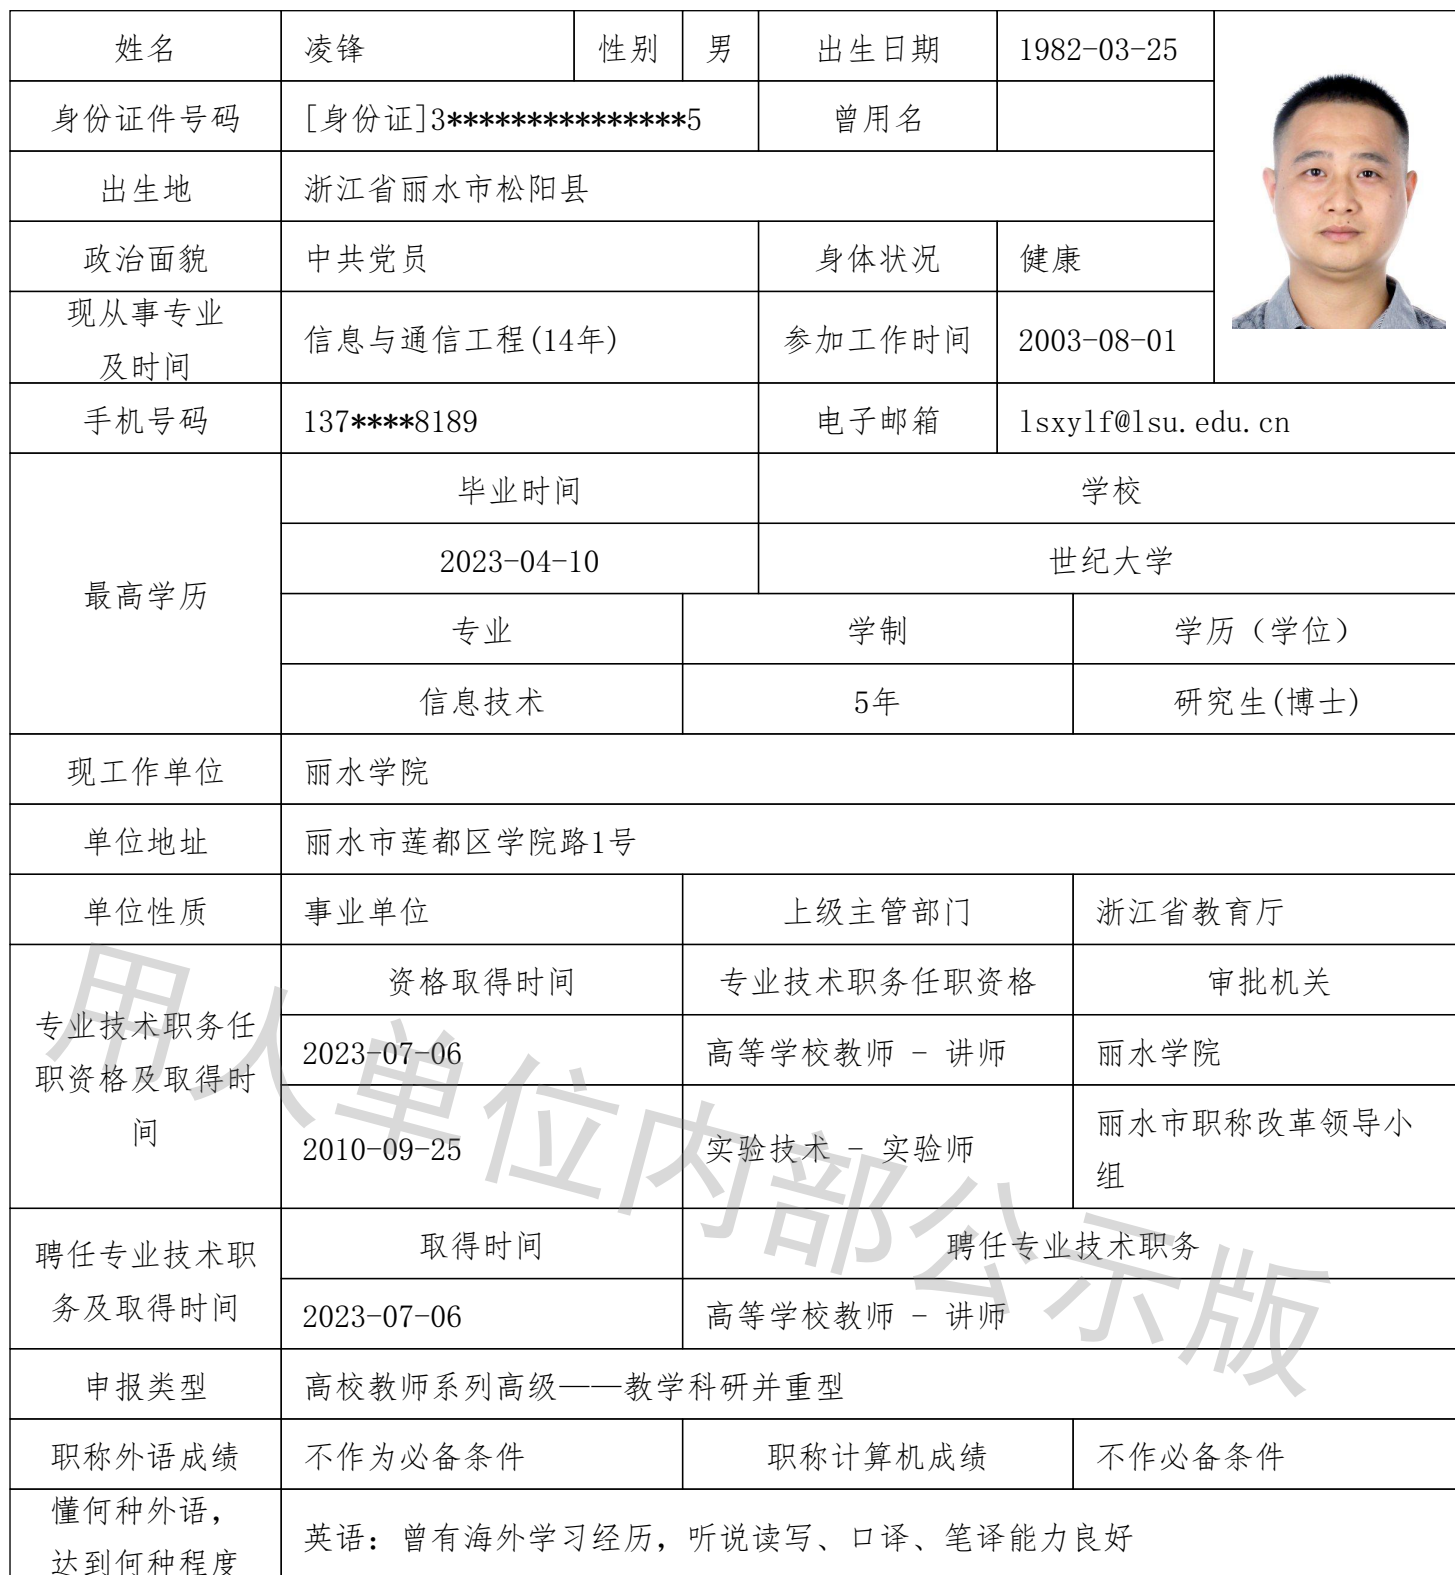 姓名 凌锋 性别 男 出生日期 1982-03-25
身份证件号码 [身份证]3***************5 曾用名
出生地 浙江省丽水市松阳县
政治面貌 中共党员 身体状况 健康
现从事专业
及时间 信息与通信工程(14年) 参加工作时间 2003-08-01
手机号码 137****8189 电子邮箱 lsxylf@lsu.edu.cn
最高学历
毕业时间 学校
2023-04-10 世纪大学
专业 学制 学历（学位）
信息技术 5年 研究生(博士)
现工作单位 丽水学院
单位地址 丽水市莲都区学院路1号
单位性质 事业单位 上级主管部门 浙江省教育厅
专业技术职务任
职资格及取得时
间
资格取得时间 专业技术职务任职资格 审批机关
2023-07-06 高等学校教师 - 讲师 丽水学院
2010-09-25 实验技术 - 实验师 丽水市职称改革领导小
组
聘任专业技术职
务及取得时间
取得时间 聘任专业技术职务
2023-07-06 高等学校教师 - 讲师
申报类型 高校教师系列高级——教学科研并重型
职称外语成绩 不作为必备条件 职称计算机成绩 不作必备条件
懂何种外语，
达到何种程度 英语：曾有海外学习经历，听说读写、口译、笔译能力良好
用人单位内部公示版